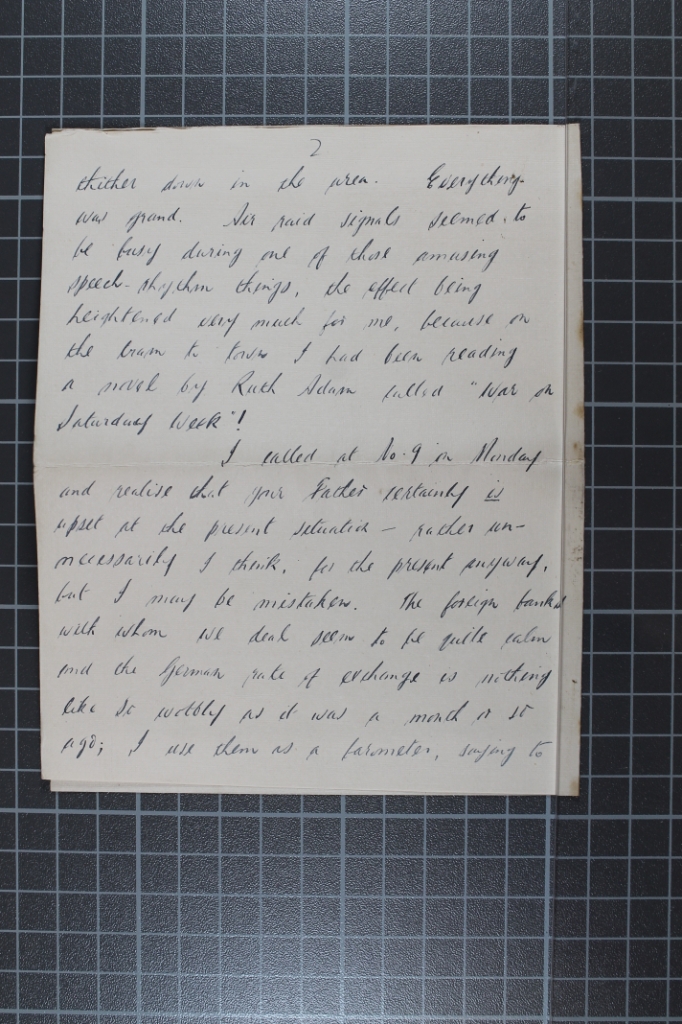 2
thither down in the area. Everything
was grand. Air raid signals seemed to
be busy during one of those amusing
speech-rhythm things, the effect being
heightened very much for me, because on
the tram to town I had been reading
a novel by Ruth Adam called "War on
Saturday Week"!
I called at No. 9 on Monday
and realise that your Father certainly is
upset at the present situation — rather un-
necessarily I think, for the present anyway,
but I may be mistaken. The foreign banks
with whom we deal seem to be quite calm
and the German rate of exchange is nothing
like so wobbly as it was a month or so
ago; I use them as a barometer, saying to